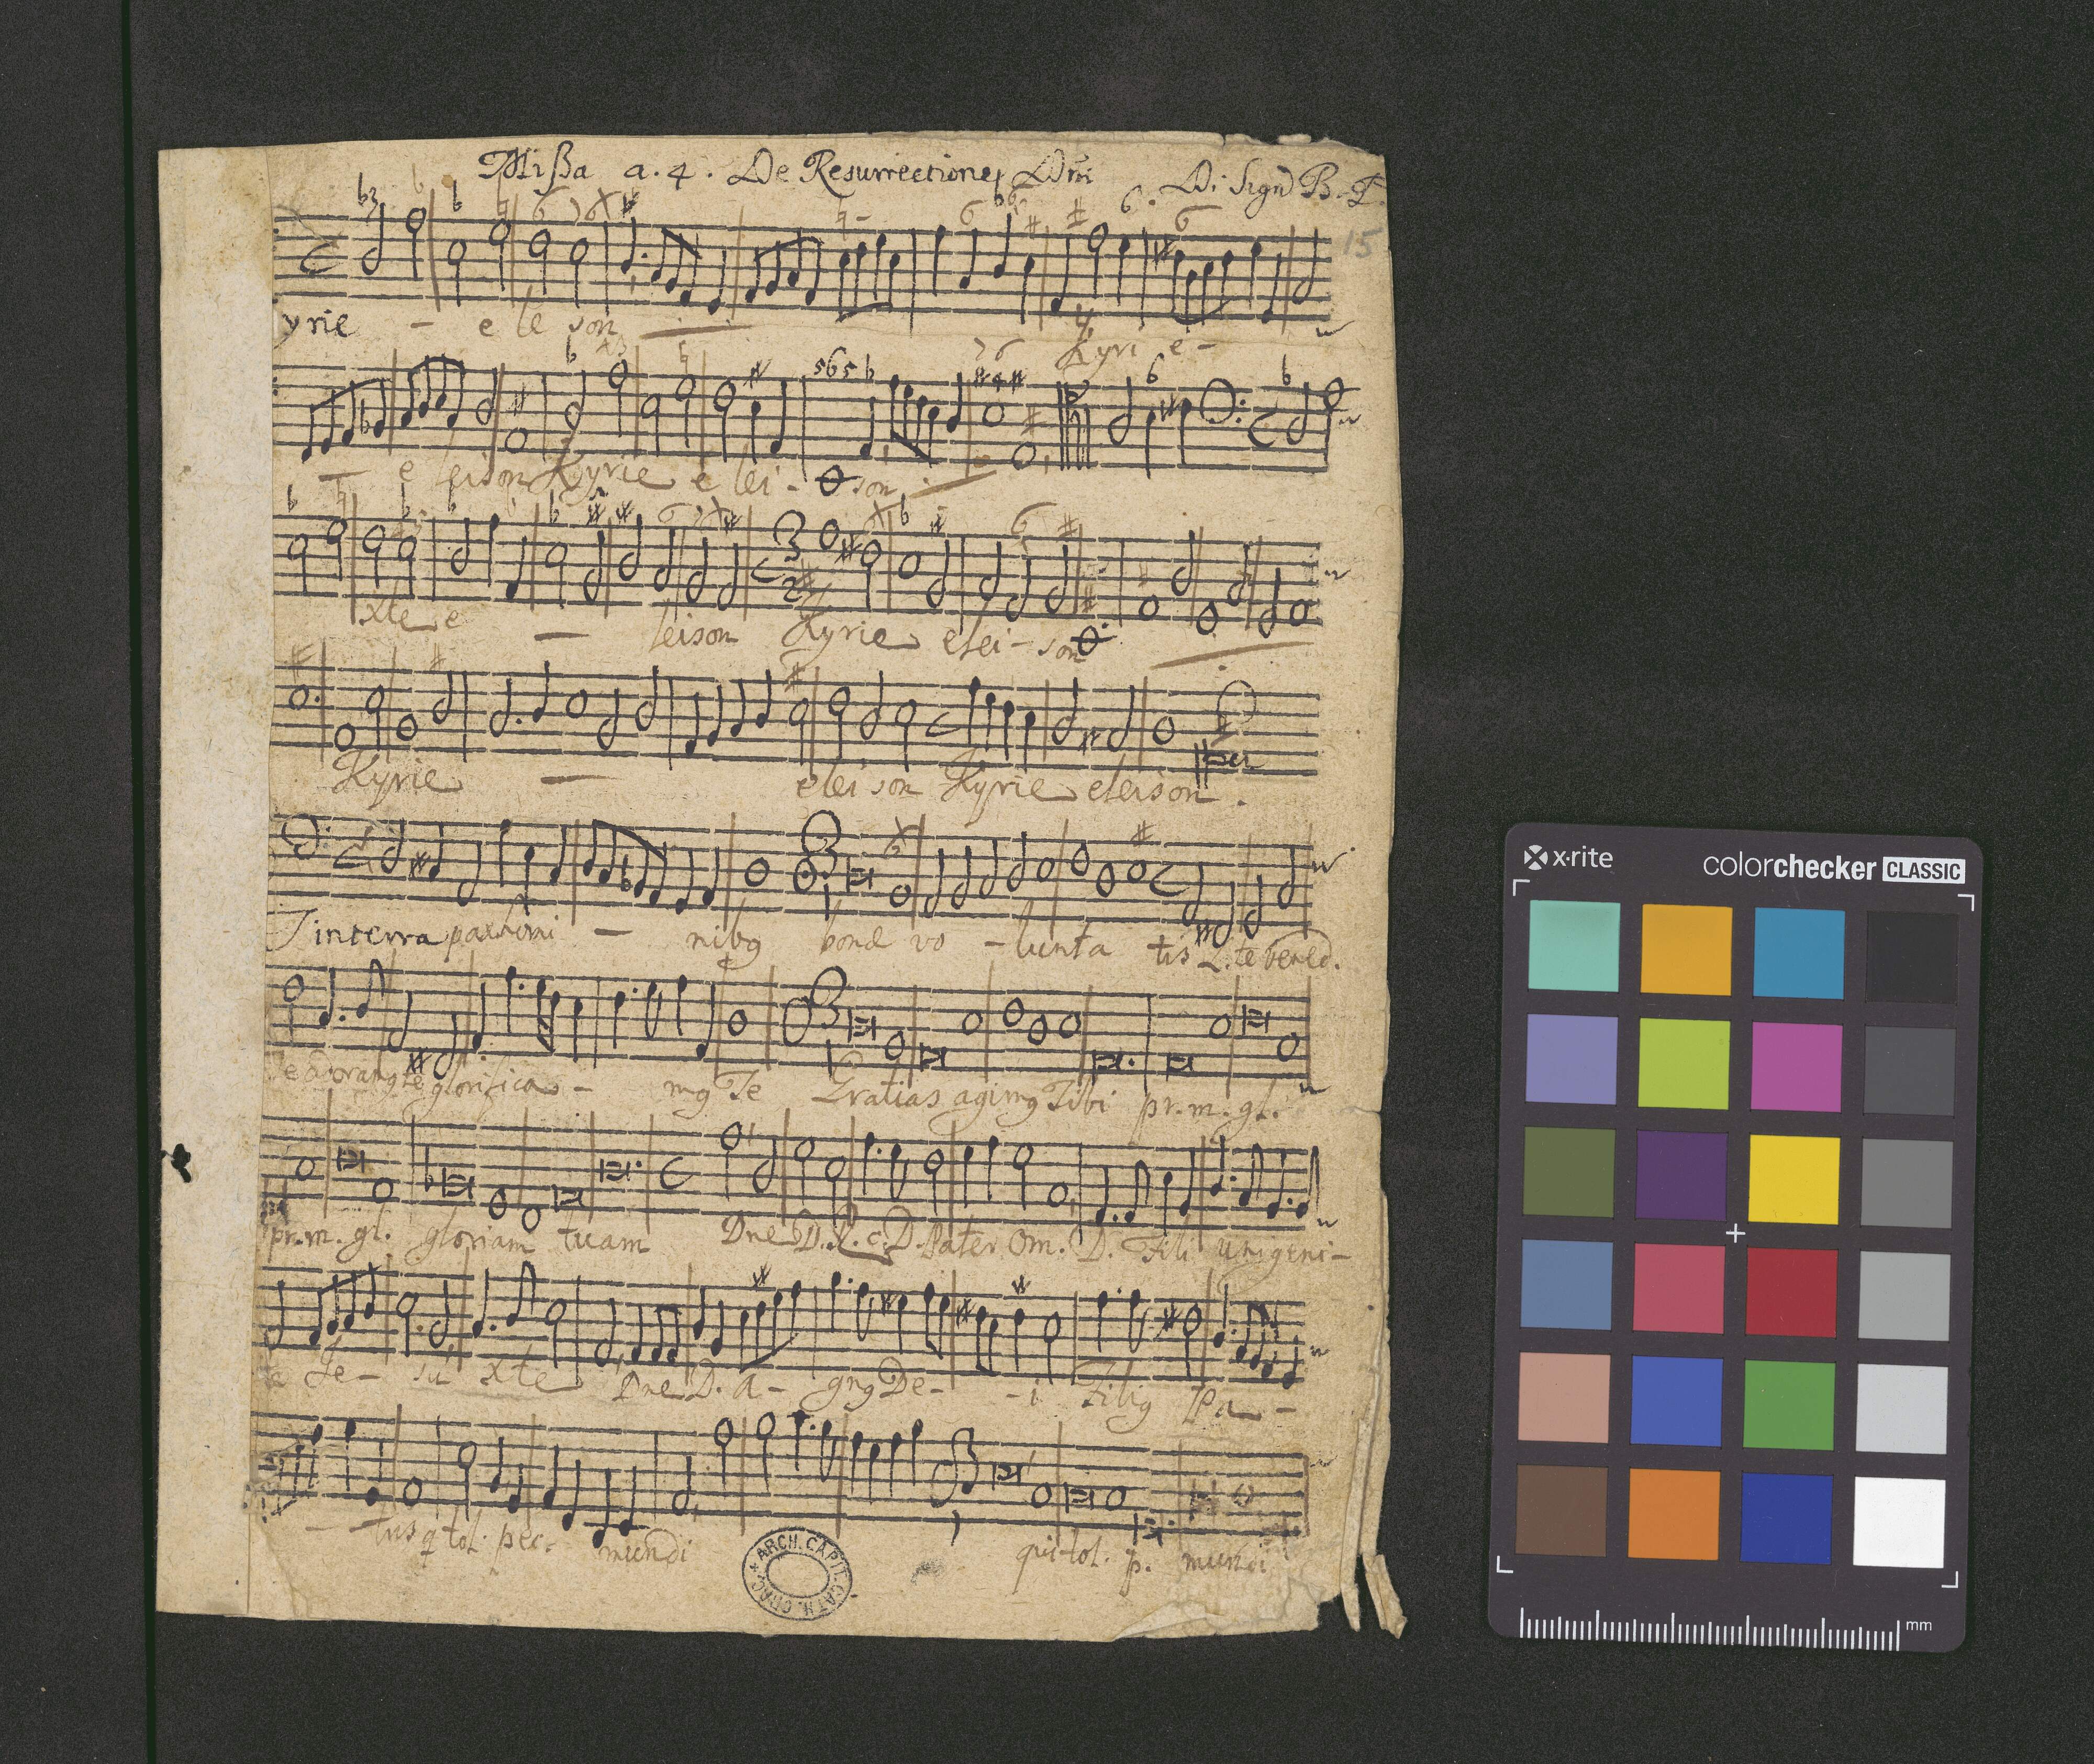 Mißa a. 4. De Resurrectione Dñi Di Sign B. P.
15
yrie - e le son Kyri e -
- e leison Kyrie e lei - son
xte e - leison Kyrie elei - son
Kyrie - elei son Kyrie eleison.
T interra pax homi - nibq bonæ vo - lunta tis L. te bened.
Te adorang te glorifica - mq Te Gratias agimq Tibi pr. m. gl.
pr. m. gl. gloriam tuam Dne D. R. c. D. Pater Om. D. Fili unigeni -
te Je - su xte Dne D. A - gnq De - - i Filiq Pa -
- tris q tol. pec. mundi qui tol. p. mundi
ARCH. CAPIT. CATH. CRAC.
x-rite
colorchecker CLASSIC
mm